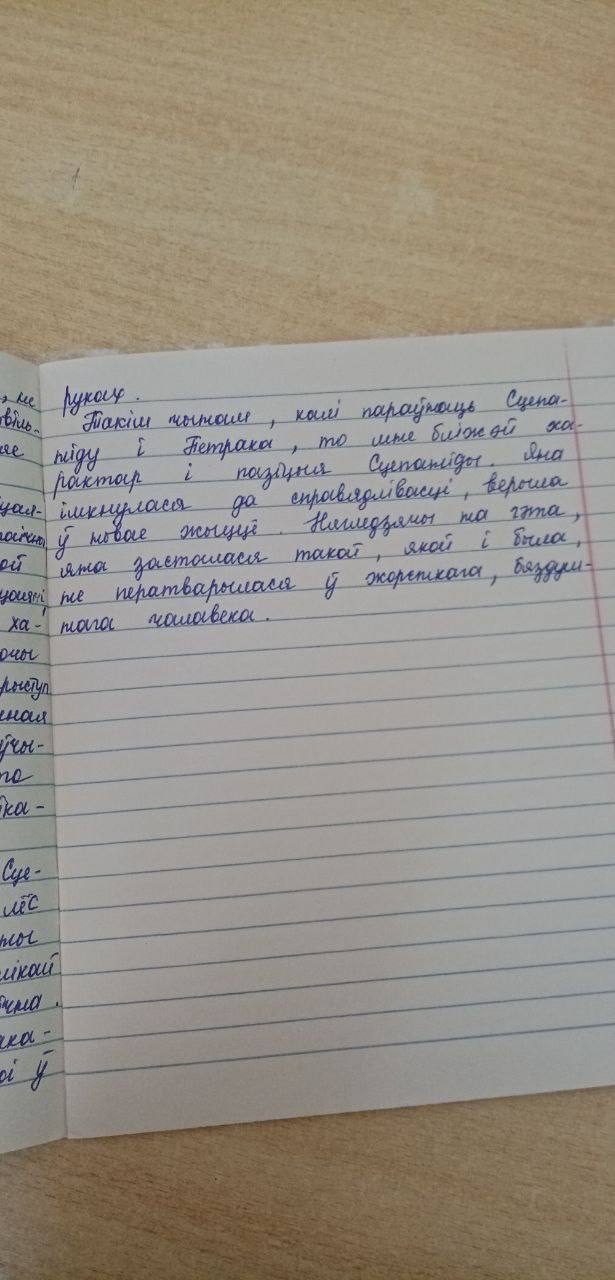 руках.
Такім чынам, калі параўнаць Сцепа-
ніду і Петрака, то мне бліжэй ха-
рактар і пазіцыя Сцепаніды. Яна
імкнулася да справядлівасці, верыла
ў новае жыццё. Нягледзячы на гэта,
яна засталася такой, якой і была,
не ператварылася ў жорсткага, бяздуш-
нага чалавека.
, не
ха-
рыступ
ная
ўчы-
го
ка-
Сце-
лёс
мікай
ака-
оі ў